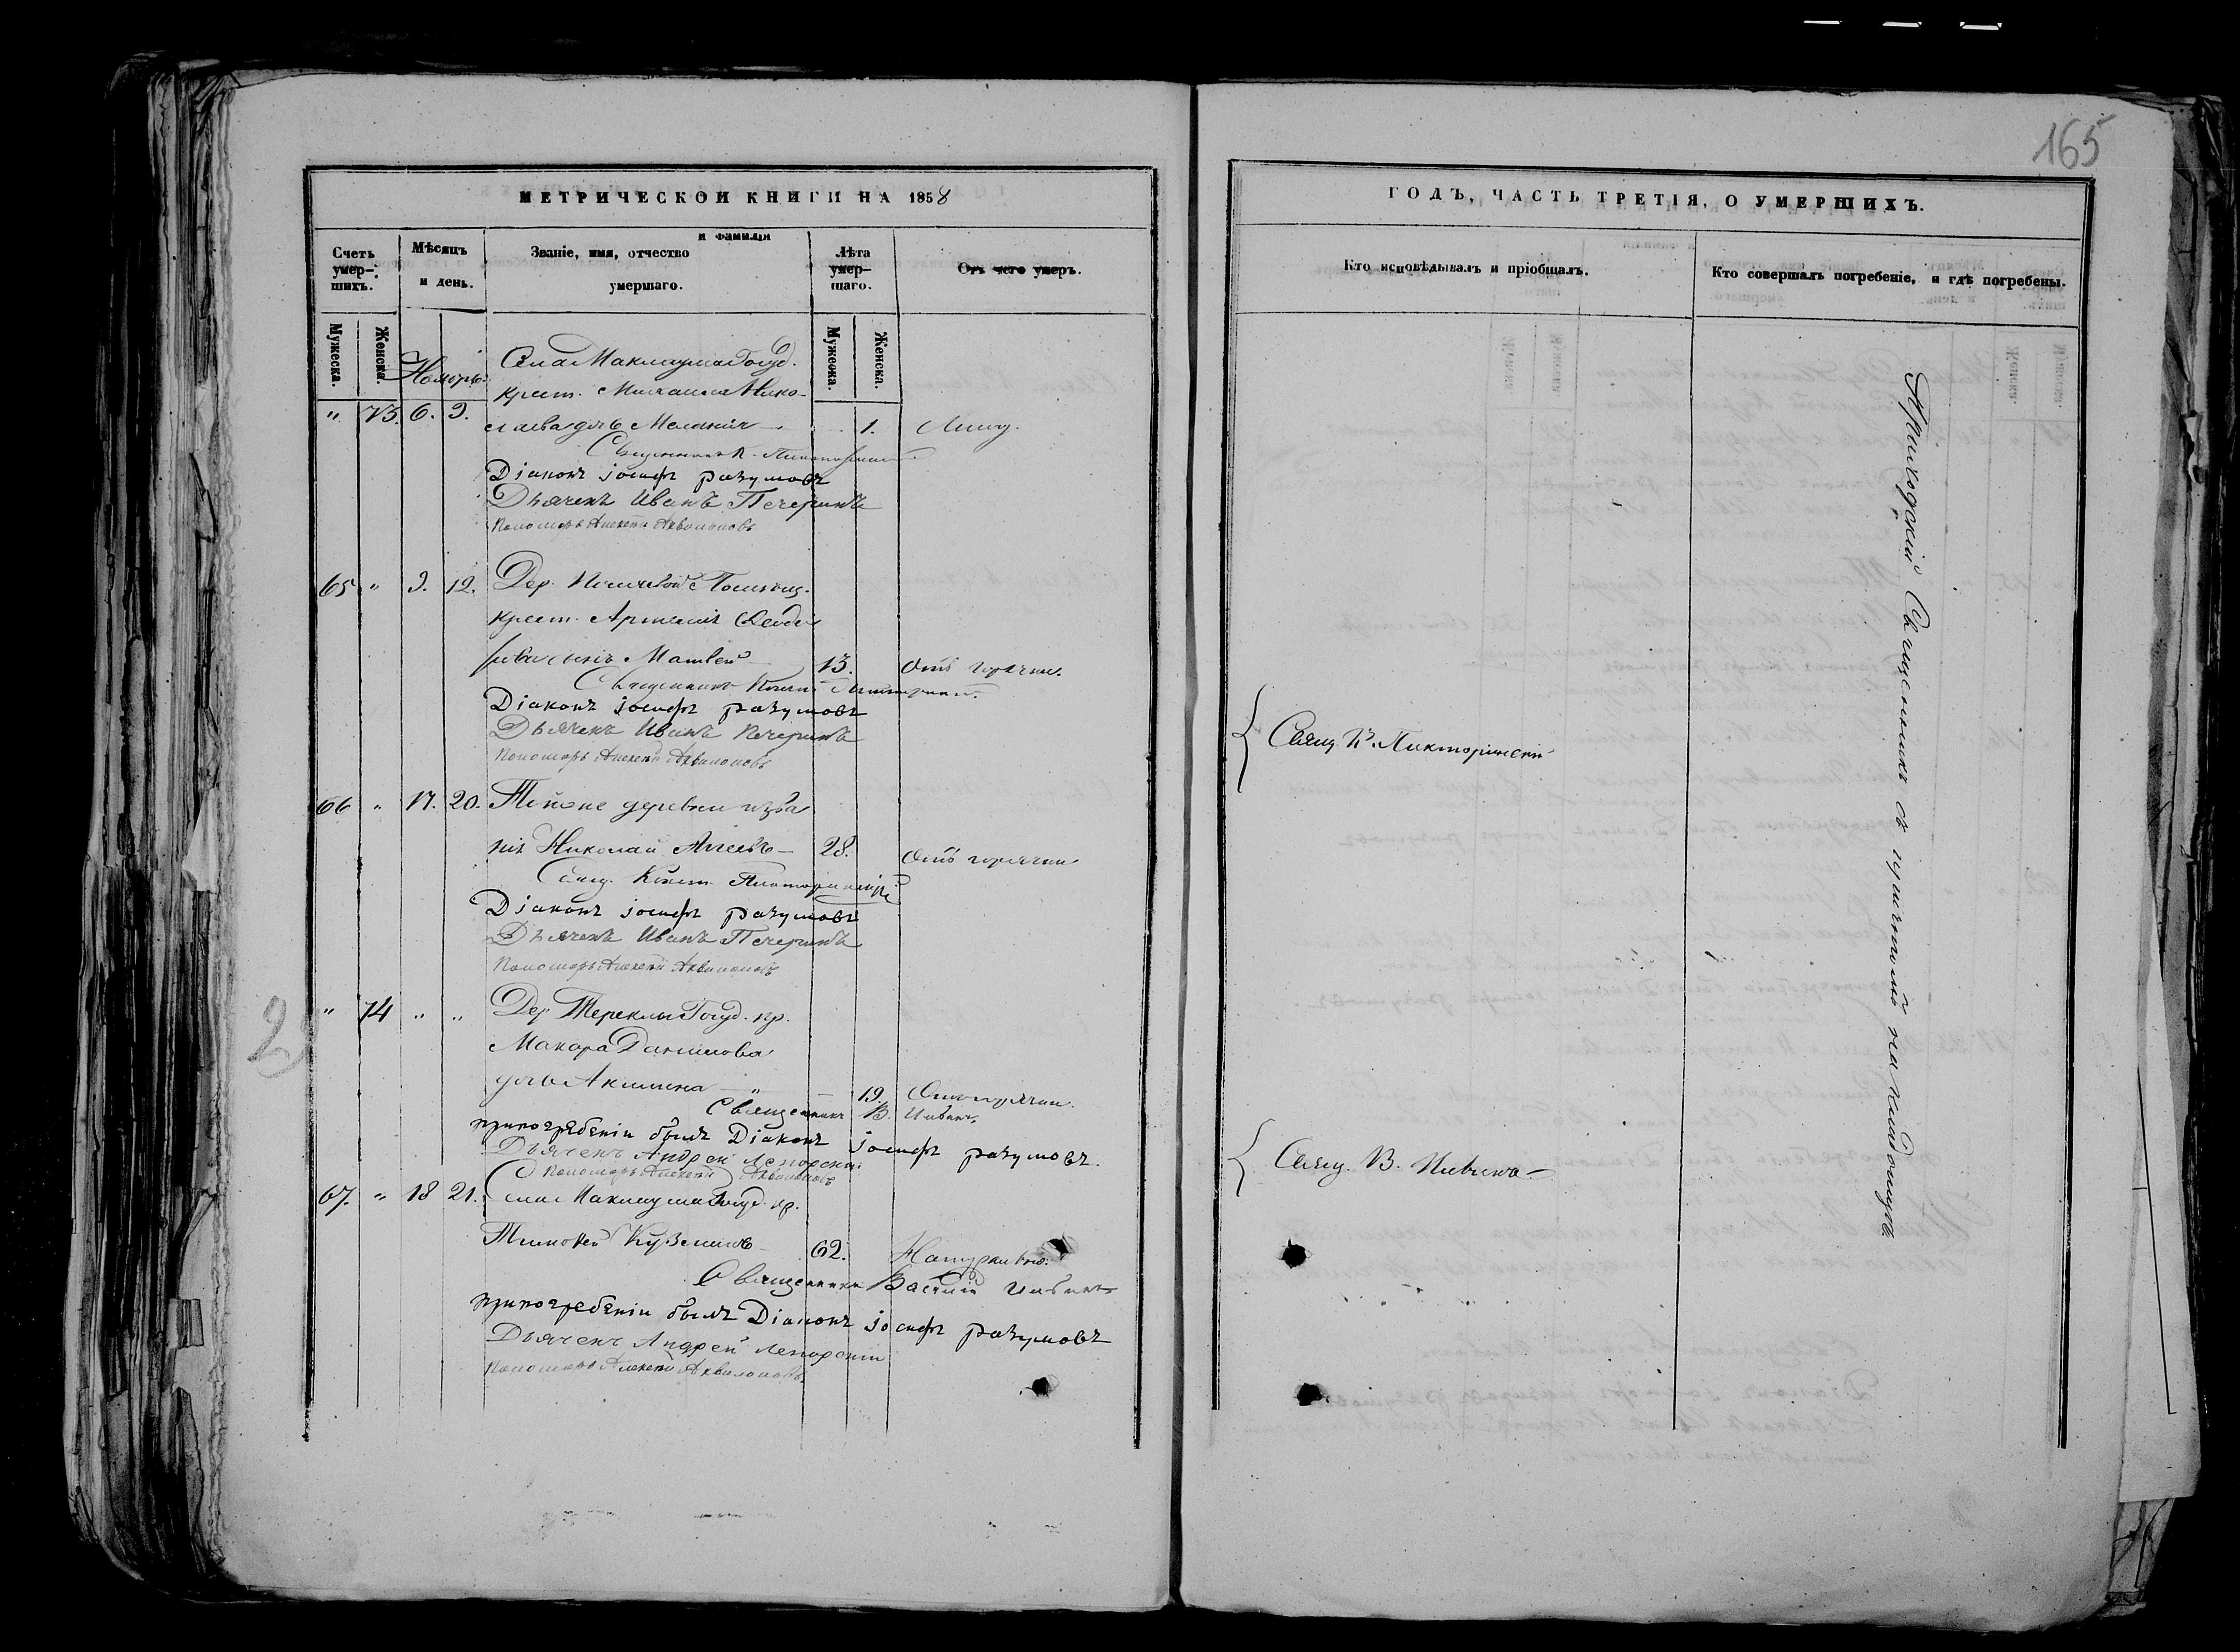 165
МЕТРИЧЕСКОЙ КНИГИ НА 1858
Счетъ умер-шихъ.
Мѣсяцъ и день.
Званіе, имя, отчество и фамилія умершаго.
Лѣта умер-шаго.
Отъ чего умеръ.
Мужеска.
Женска.
Мужеска.
Женска.
Ноябрь
Села Маклауша Госуд.
крест. Михаила Нико-
" 73. 6. 9. лаева дочь Меланія 1.
Священникъ К. Пикторинскій
Діаконъ іосифъ разумовъ
Дьячекъ Иванъ Печеринъ
Пономарь Алексѣй Аквилоновъ
65 " 9. 12. Дер. Помѣщ.
крест. Артемія Ѳеодо
рова сынъ Матвей 13. Отъ горячки.
Священникъ Пикторинскій
Діаконъ іосифъ разумовъ
Дьячекъ Иванъ Печеринъ
Пономарь Алексѣй Аквилоновъ
66 " 17. 20. Тойже деревни
Николай 28. Отъ горячки
Свящ. Конст. Пикторинскій
Діаконъ іосифъ разумовъ
Дьячекъ Иванъ Печеринъ
Пономарь Алексѣй Аквилоновъ
" 74 " " Дер. Тереклы Госуд. кр.
Макара Данилова
дочь Акилина 19. Отъ горячки.
Священникъ В. Ивинъ
при погребеніи былъ Діаконъ іосифъ разумовъ.
Дьячекъ Андрей Лепорскій
Пономарь Алексѣй Аквилоновъ
67. " 18 21. Села Маклауша Госуд. кр.
Тимофей Кузьминъ 62. Натурально.
Священникъ Василій Ивинъ
при погребеніи былъ Діаконъ іосифъ разумовъ
Дьячекъ Андрей Лепорскій
Пономарь Алексѣй Аквилоновъ.
ГОДЪ, ЧАСТЬ ТРЕТІЯ, О УМЕРШИХЪ.
Кто исповѣдывалъ и пріобщалъ.
Кто совершалъ погребеніе, и гдѣ погребены.
Свящ. К. Пикторинскій
Свящ. В. Ивинъ
Приходскій Священникъ съ причтомъ на кладбищѣ